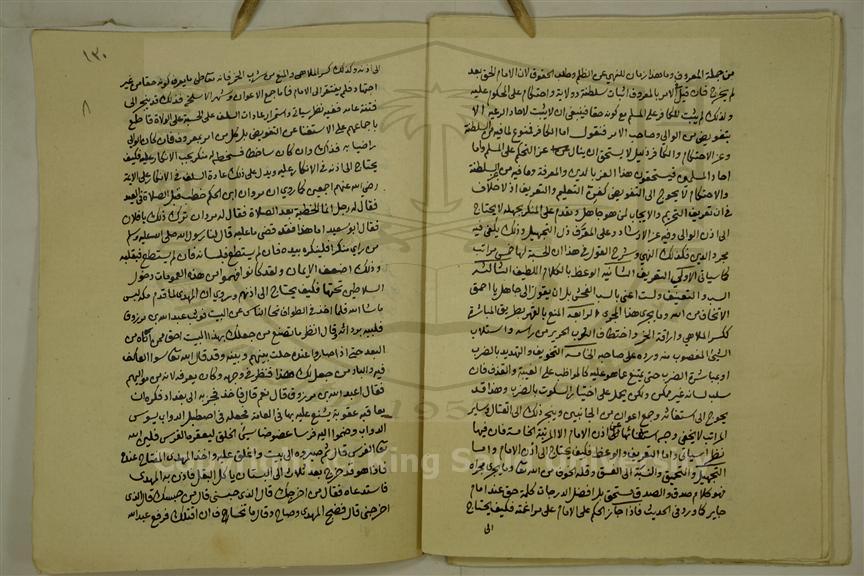 من جملة المعروف وما هذا زمان للنهي عن الظلم وطلب الحقوق لان الامام الحق بعد
لم يخرج فان قيل الامر بالمعروف اثبات سلطنة وولاية واحتكام على المحكوم عليه
ولذلك لم يثبت للكافر على المسلم مع كونه حقا فينبغي ان لا يثبت لآحاد الرعية الا
بتفويض من الوالي وصاحب الامر فنقول اما الكافر فممنوع لما فيه من السلطنة
وعز الاحتكام والكافر ذليل لا يستحق ان ينال عز التحكم على المسلم واما
احاد المسلمين فيستحقون هذا العز بالدين والمعرفة وما فيه من السلطنة
والاحتكام لا يحوج الى التفويض كعز التعليم والتعريف اذ لا خلاف
في ان تعريف التحريم والايجاب لمن هو جاهل ومقدم على المنكر بجهله لا يحتاج
الى اذن الوالي وفيه عز الارشاد وعلى المعرف ذل التجهيل وذلك يكفي فيه
مجرد الدين فكذلك النهي وشرح القول في هذا ان الحسبة لها خمس مراتب
كما سيأتي الاولى التعريف الثانية الوعظ بالكلام اللطيف الثالثة
السب والتعنيف ولست اعني بالسب الفحش بل ان يقول يا جاهل يا احمق
الا تخاف من الله وما يجري هذا المجرى الرابعة المنع بالقهر بطريق المباشرة
ككسر الملاهي واراقة الخمر واختطاف الثوب الحرير من راسه واستلاب
الشئ المغصوب منه ورده على صاحبه الخامسة التخويف والتهديد بالضرب
او مباشرة الضرب حتى يمتنع عما هو عليه كالمواظب على الغيبة والقذف فان
سلب لسانه غير ممكن ولكن يحمل على اختيار السكوت بالضرب وهذا قد
يحوج الى استغاثة وجمع اعوان من الجانبين ويجر ذلك الى القتال وساير
المراتب لا يخفى وجه استغنائها عن اذن الامام الا المرتبة الخامسة فان فيها
نظرا سيأتي واما التعريف والوعظ فكيف يحتاج الى اذن الامام واما
التجهيل والتحميق والنسبة الى الفسق وقلة الخوف من الله تعالى وما يجري مجراه
فهو كلام صدق والصدق مستحق بل افضل الدرجات كلمة حق عند امام
جاير كما ورد في الحديث فاذا جاز الحكم على الامام على مراغمته فكيف يحتاج
الى
١٣٠
٨
الى اذنه وكذلك كسر الملاهي والمنع من شراب الخمر فانه تعاطي ما يعرف كونه حقا من غير
اجتهاد فلم يفتقر الى الامام فاما جمع الاعوان وشهر الاسلحة فذلك قد ينجر الى
فتنة عامة ففيه نظر سيأتي واستمرار عادات السلف على الحسبة على الولاة قاطع
باجماعهم على الاستغنا عن التفويض بل كل من امر بمعروف فان كان الوالي
راضيا به فذاك وان كان ساخطا فسخطه له منكر يجب الانكار عليه فكيف
يحتاج الى اذنه في الانكار عليه ويدل على ذلك عادة السلف في الانكار على الائمة
رضي الله عنهم اجمعين كما روي ان مروان ابن الحكم خطب قبل الصلاة في العيد
فقال له رجل انما الخطبة بعد الصلاة فقال له مروان ترك ذلك يا فلان
فقال ابو سعيد اما هذا فقد قضى ما عليه قال لنا رسول الله صلى الله عليه وسلم
من راى منكرا فلينكره بيده فان لم يستطع فبلسانه فان لم يستطع فبقلبه
وذلك اضعف الايمان ولقد كانوا فهموا من هذه العمومات دخول
السلاطين تحتها فكيف يحتاج الى اذنهم وروي ان المهدي لما قدم مكة لبث
ما شا الله فلما اخذ في الطواف نحا الناس عن البيت فوثب عبد الله بن مرزوق
فلببه بردائه ثم قال انظر ما تصنع من جعلك بهذا البيت احق ممن اتاه من
البعد حتى اذا صاروا عنده حلت بينهم وبينه وقد قال الله تعالى سوا العاكف
فيه والباد من جعل لك هذا فنظر في وجهه وكان يعرفه لانه من مواليهم
فقال اعبد الله بن مرزوق قال نعم قال فاخذ فجئ به الى بغداد فكره ان
يعاقبه عقوبة يشنع عليه بها في العامة فجعله في اصطبل الدواب يسوس
الدواب وضموا اليه فرسا عضوضا سيئ الخلق ليعقره الفرس فلين الله
له الفرس قال ثم صيروه الى بيت واغلق عليه واخذ المهدي المفتاح عنده
فاذا هو قد خرج بعد ثلاث الى البستان ياكل البقل فاوذن به المهدي
فاستدعاه فقال من اخرجك قال الذي حبسني قال من حبسك قال الذي
اخرجني قال فضج المهدي وصاح وقال ما تخاف ان اقتلك فرفع عبد الله